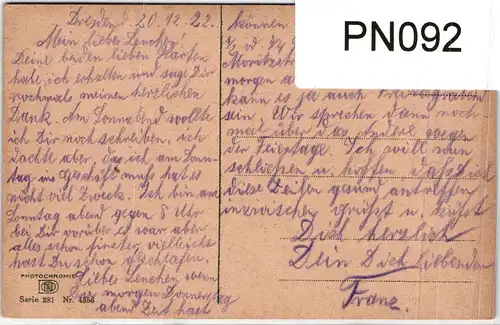 Dresden d. 20.12.22.
Mein liebes Lenchen!
Deine beiden lieben Karten
habe ich erhalten und sage Dir
nochmals meinen herzlichen
Dank. Am Sonnabend wollte
ich Dir noch schreiben, ich
dachte aber, das ich am Sonn-
tag ins Geschäft muß hat es
nicht viel Zweck. Ich bin am
Sonntag abend gegen 8 Uhr
bei Dir vorüber es war aber
alles schon finster, vielleicht
hast Du schon geschlafen.
Liebes Lenchen wenn
Du morgen Donnerstag
abend Zeit hast
PHOTOCHROMIE
Serie 281 Nr. 4356
können
Moritzstr
morgen a
kann es ja auch
sein. Wir sprechen dann noch
mal über das andere wegen
der Feiertage. Ich will nun
schließen u. hoffen daß Dich
diese Zeilen gesund antreffen
inzwischen grüßt u. küßt
Dich herzlich
Dein Dich liebender
Franz.
PN092